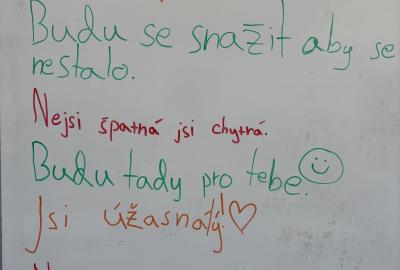 Budu se snažit aby se
nestalo.
Nejsi špatná jsi chytrá.
Budu tady pro tebe.
Jsi